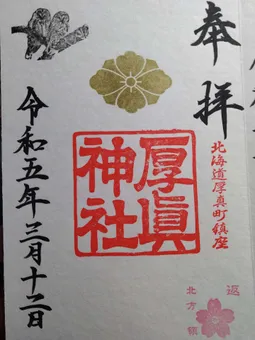 奉拝
北海道厚真町鎮座
厚眞
神社
令和五年三月十二日
北方領
返